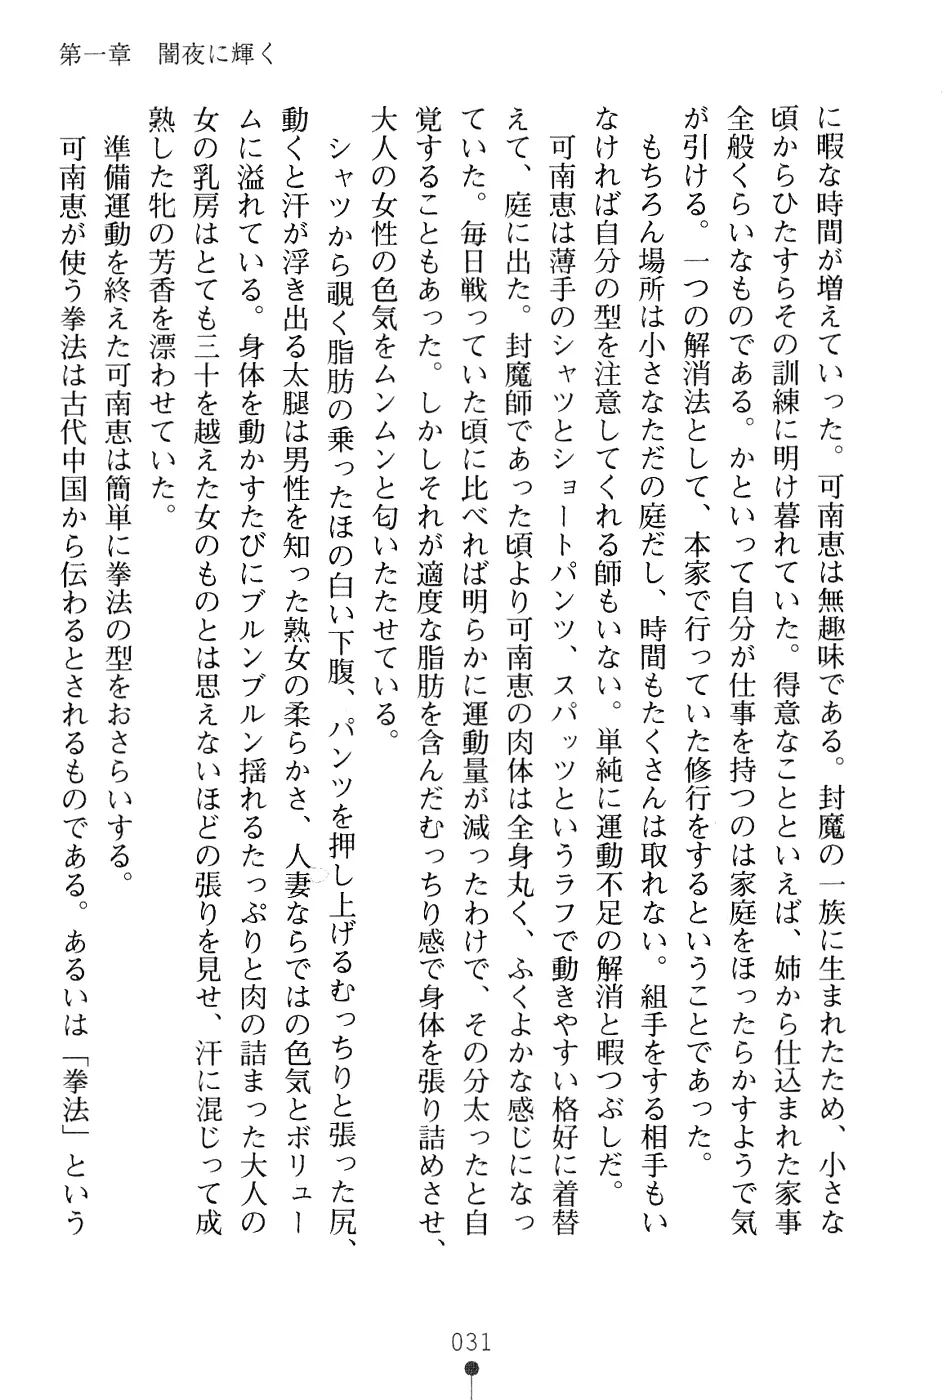 第一章　闇夜に輝く
に暇な時間が増えていった。可南恵は無趣味である。封魔の一族に生まれたため、小さな
頃からひたすらその訓練に明け暮れていた。得意なことといえば、姉から仕込まれた家事
全般くらいなものである。かといって自分が仕事を持つのは家庭をほったらかすようで気
が引ける。一つの解消法として、本家で行っていた修行をするということであった。
　もちろん場所は小さなただの庭だし、時間もたくさんは取れない。組手をする相手もい
なければ自分の型を注意してくれる師もいない。単純に運動不足の解消と暇つぶしだ。
　可南恵は薄手のシャツとショートパンツ、スパッツというラフで動きやすい格好に着替
えて、庭に出た。封魔師であった頃より可南恵の肉体は全身丸く、ふくよかな感じになっ
ていた。毎日戦っていた頃に比べれば明らかに運動量が減ったわけで、その分太ったと自
覚することもあった。しかしそれが適度な脂肪を含んだむっちり感で身体を張り詰めさせ、
大人の女性の色気をムンムンと匂いたたせている。
　シャツから覗く脂肪の乗ったほの白い下腹、パンツを押し上げるむっちりと張った尻、
動くと汗が浮き出る太腿は男性を知った熟女の柔らかさ、人妻ならではの色気とボリュー
ムに溢れている。身体を動かすたびにブルンブルン揺れるたっぷりと肉の詰まった大人の
女の乳房はとても三十を越えた女のものとは思えないほどの張りを見せ、汗に混じって成
熟した牝の芳香を漂わせていた。
　準備運動を終えた可南恵は簡単に拳法の型をおさらいする。
　可南恵が使う拳法は古代中国から伝わるとされるものである。あるいは「拳法」という
031